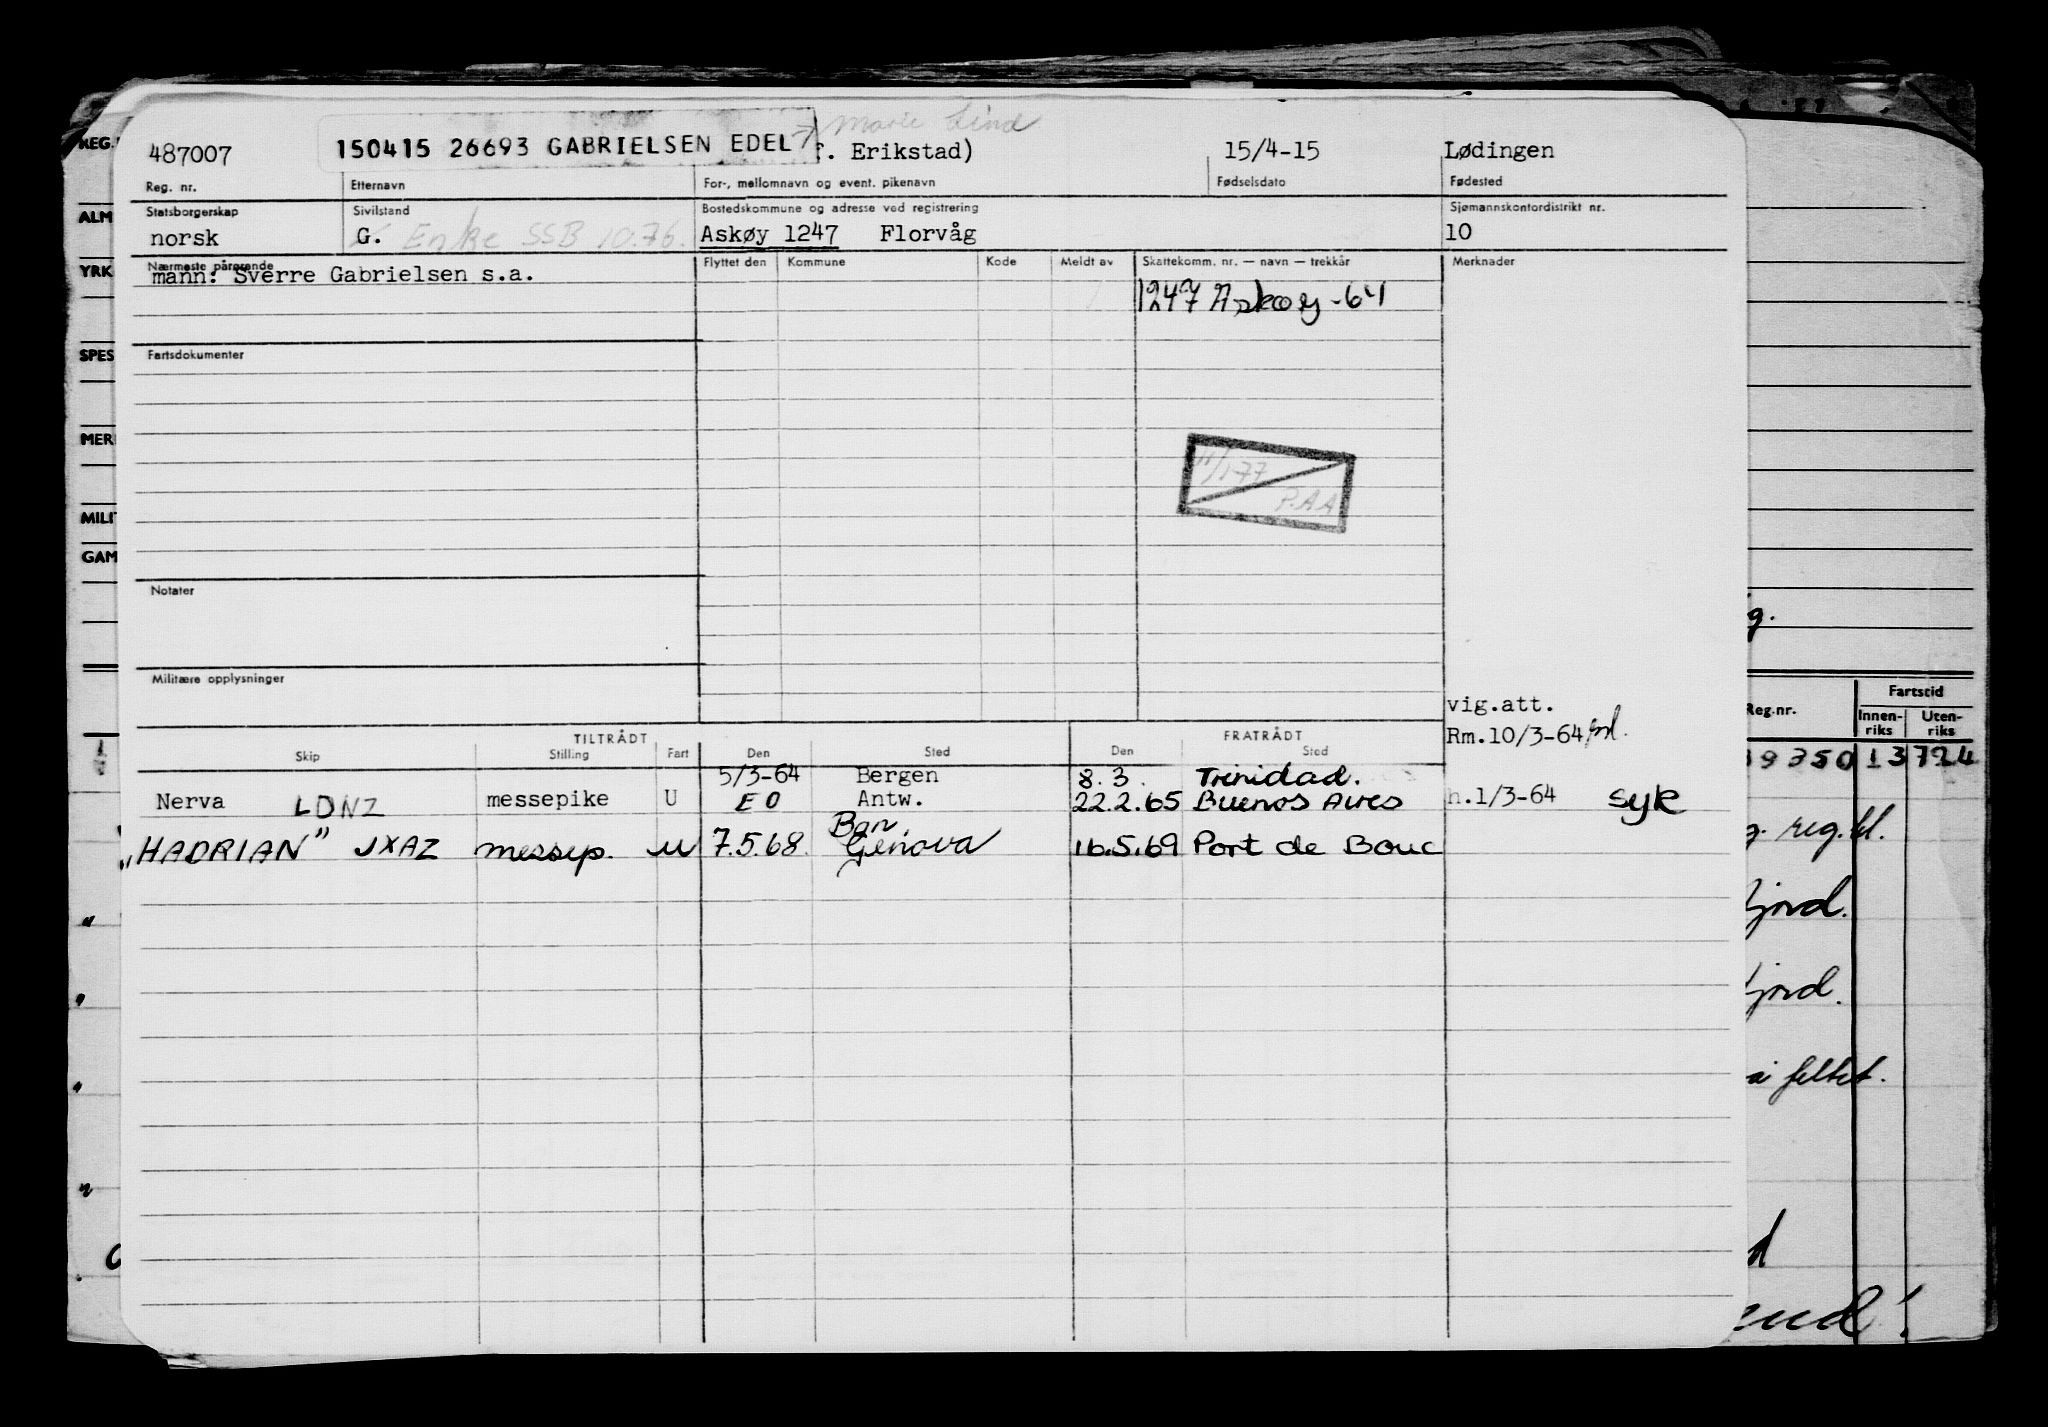 Marie Lind
487007 150415 26693 GABRIELSEN EDEL f. Erikstad) 15/4-15 Lødingen
Reg. nr. Etternavn For-, mellomnavn og event. pikenavn Fødselsdato Fødested
Statsborgerskap Sivilstand Bostedskommune og adresse ved registrering Sjømannskontordistrikt nr.
norsk G. Enke SSB 10.76. Askøy 1247 Florvåg 10
Nærmeste pårørende Flyttet den Kommune Kode Meldt av Skattekomm. nr. — navn — trekkår Merknader
mann: Sverre Gabrielsen s.a.
1247 Askøy -64
Fartsdokumenter
11/1-77
P.AA
Notater
Militære opplysninger
vig.att.
Rm.10/3-64
TILTRÅDT FRATRÅDT
Skip Stilling Fart Den Sted Den Sted
5/3-64 Bergen 8.3. Trinidad.
Nerva LDNZ messepike U EO Antw. 22.2.65 Buenos Aires h.1/3-64 syk
"HADRIAN" JXAZ messep. U 7.5.68. Genova 16.5.69 Port de Bouc
REG.
ALM
YRK
SPES
MER
MILIT
GAM
g.
Reg.nr. Fartstid
Innen-riks Uten-riks
9350 13 724
reg.bl.
fjord.
fjord.
feltet.